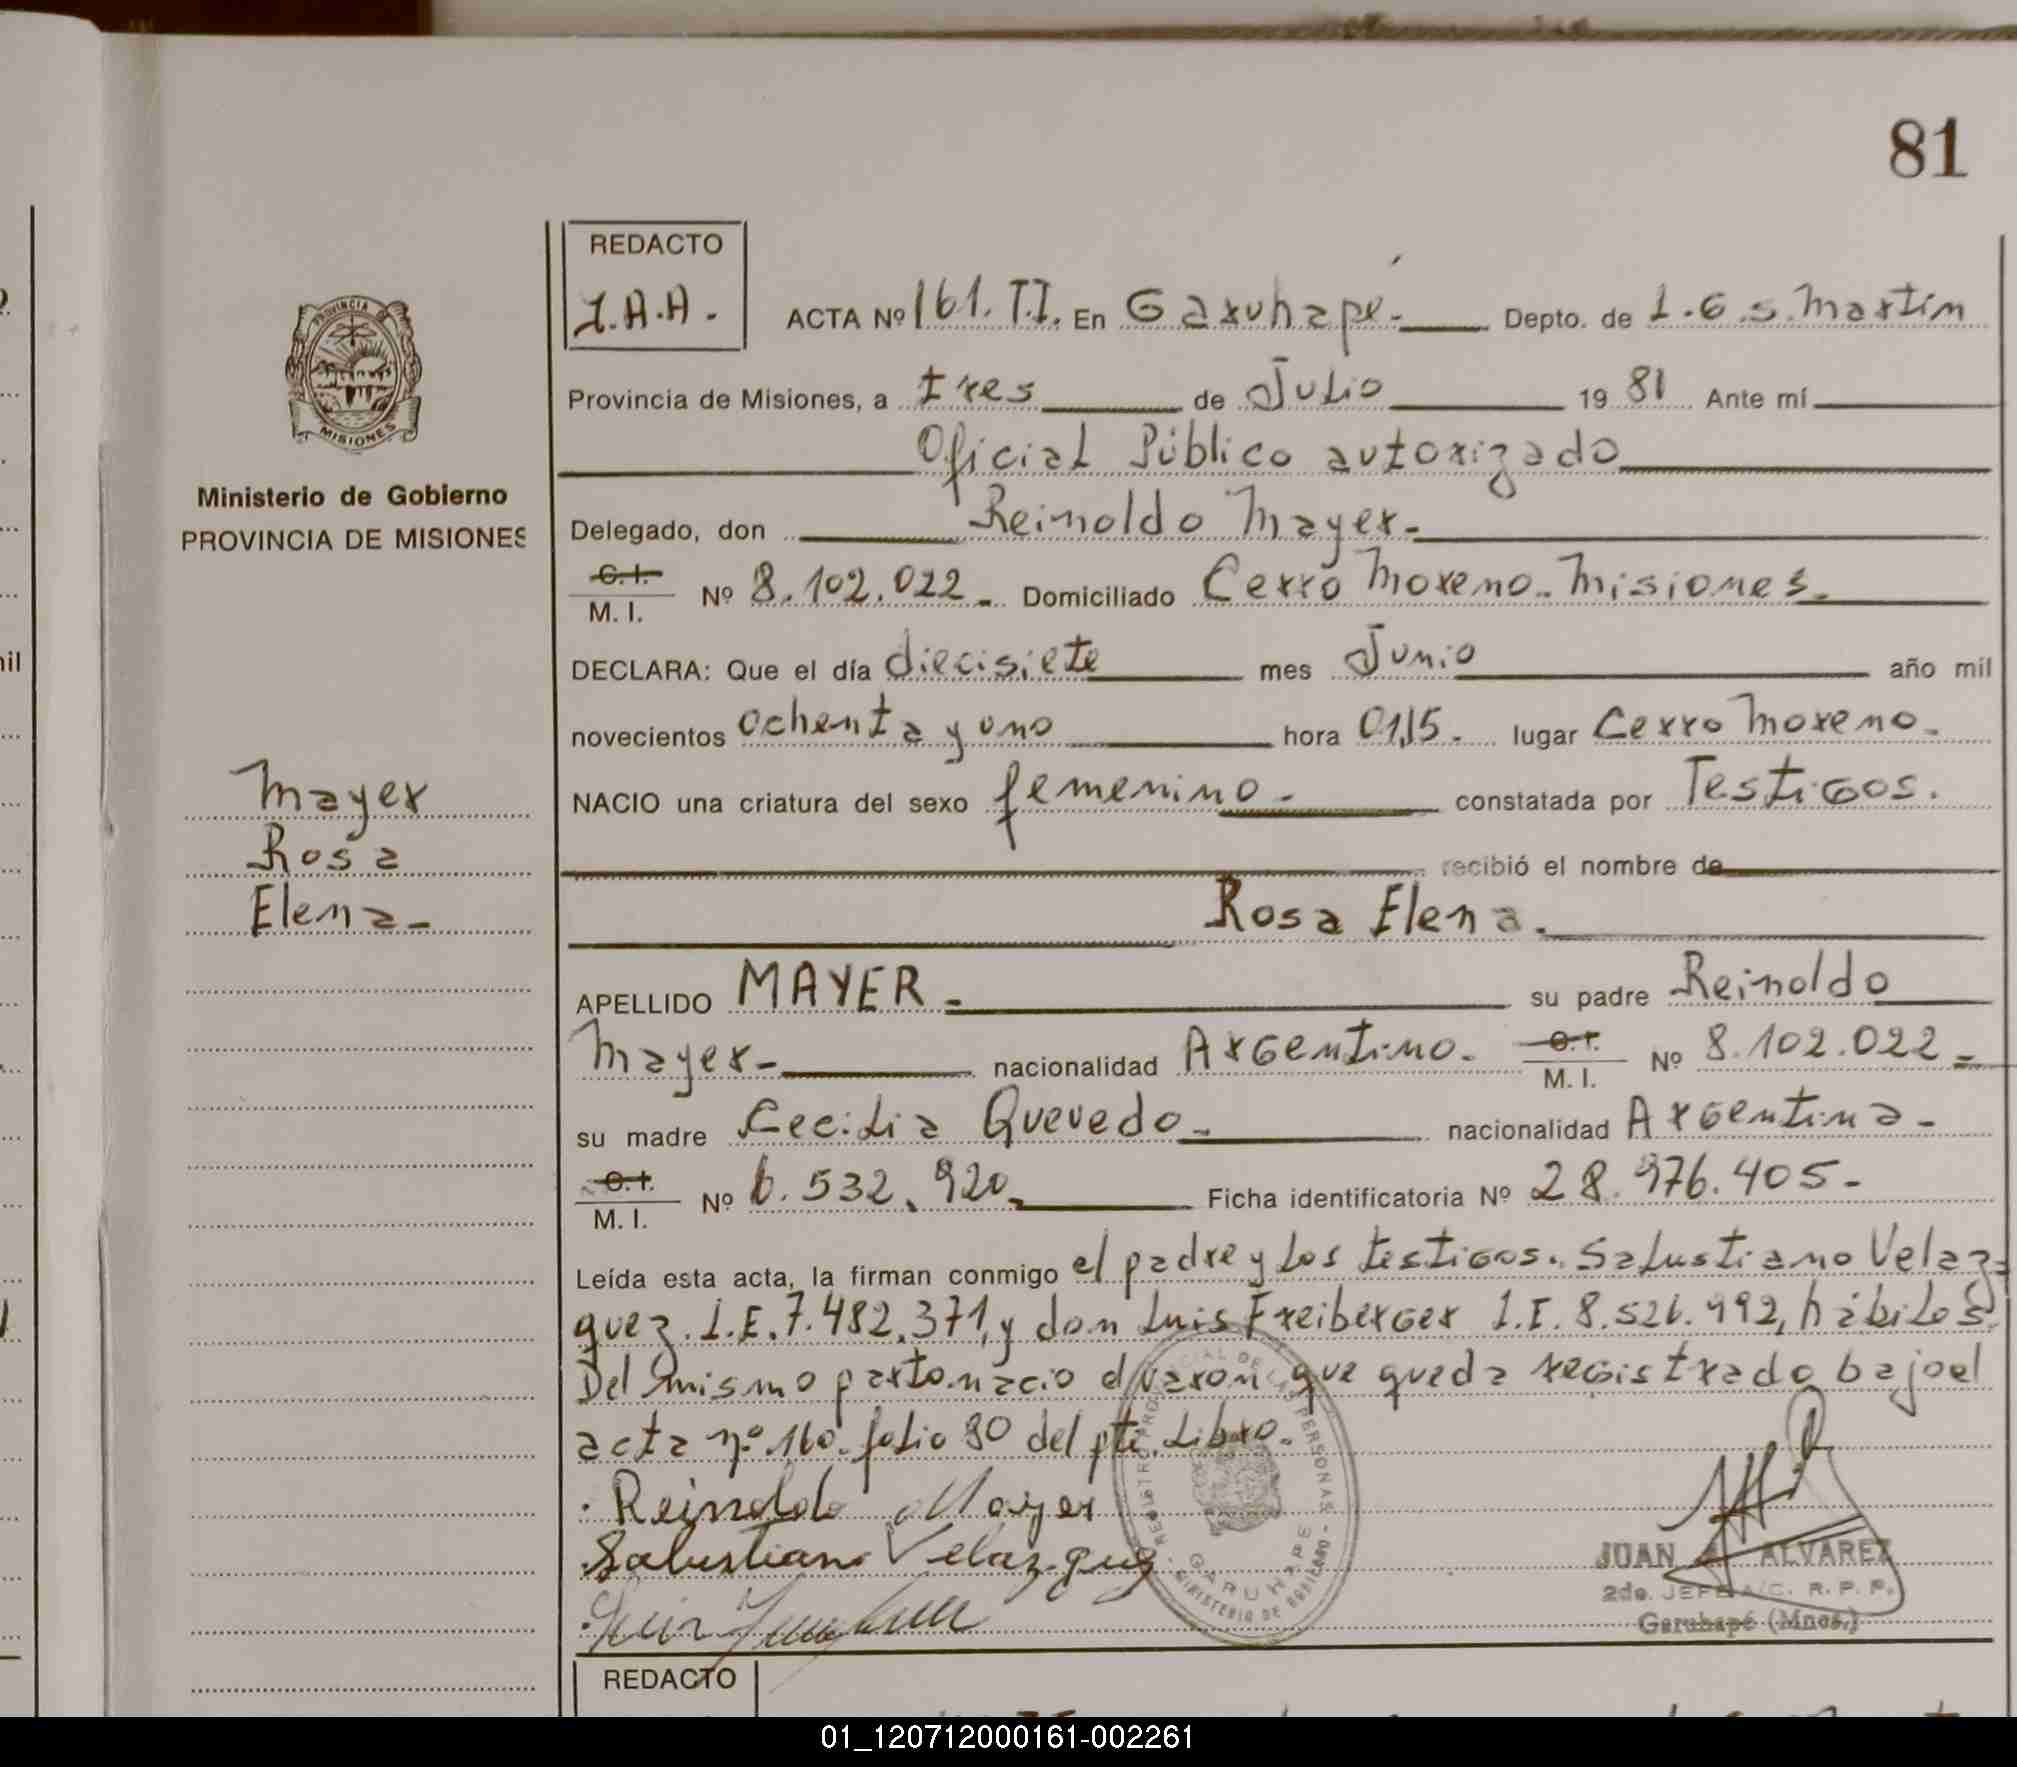 81
REDACTO
J.A.A.
ACTA Nº 161. T.I. En Garuhapé. Depto. de L.G.S. Martín
Provincia de Misiones, a tres de Julio 1981 Ante mí
Oficial Público autorizado
Delegado, don Reinoldo Mayer.
C.I. M.I. Nº 8.102.022. Domiciliado Cerro Moreno. Misiones.
DECLARA: Que el día diecisiete mes Junio año mil
novecientos ochenta y uno hora 01,15. lugar Cerro Moreno.
NACIO una criatura del sexo femenino. constatada por Testigos.
recibió el nombre de
Rosa Elena.
APELLIDO MAYER. su padre Reinoldo
Mayer. nacionalidad Argentino. C.I. M.I. Nº 8.102.022.
su madre Cecilia Quevedo. nacionalidad Argentina.
C.I. M.I. Nº 6.532.920. Ficha identificatoria Nº 28.976.405.
Leída esta acta, la firman conmigo el padre y los testigos. Salustiano Velaz-
quez. L.E. 7.482.371, y don Luis Freiberger L.E. 8.526.992, hábiles.
Del mismo parto nacio el varon que queda registrado bajo el
acta nº 160. folio 80 del pte. Libro.
Reinoldo Mayer
Salustiano Velazquez
Luis
REGISTRO PROVINCIAL DE LAS PERSONAS
GARUHAPE
MINISTERIO DE GOBIERNO
JUAN A. ALVAREZ
2do. JEFE A/C. R. P. P.
Garuhapé (Mnes.)
PROVINCIA DE
MISIONES
Ministerio de Gobierno
PROVINCIA DE MISIONES
Mayer
Rosa
Elena.
mil
REDACTO
01_120712000161-002261